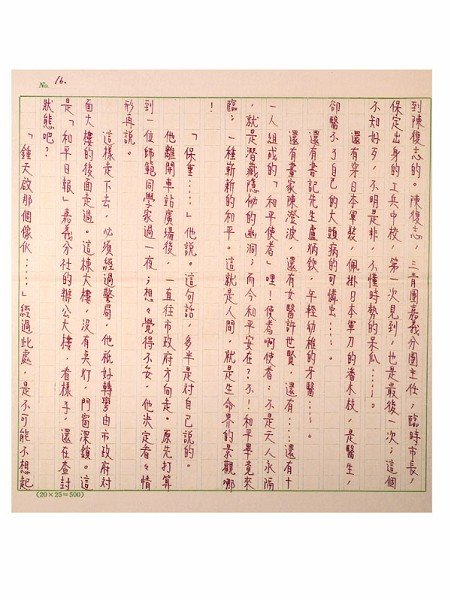 No. 16.
到陳復志的。陳復志,三青團嘉義分團主任,臨時市長,
保定出身的工兵中校,第一次見到,也是最後一次;這個
不知好歹,不明是非,不懂時勢的呆瓜……。
還有穿日本軍裝,佩掛日本軍刀的潘木枝,是醫生,
卻醫不了自己的大頭病的可憐虫……。
還有書記先生盧炳欽,年輕幼稚的牙醫……。
還有畫家陳澄波,還有女醫許世賢,還有……還有十
一人組成的「和平使者」哩!使者啊使者,不是天人永隔
,就是潛藏隱的幽洞;而今和平安在?不!和平畢竟來
臨,一種嶄新的和平。這就是人間,就是生命界的景觀哪
!
「保重……」他說。這句話,多半是對自己說的。
他離開車站廣場後,一直往市政府方向走。原先打算
到一位師範同學家過一夜;想々覺得不妥,他決定看々情
形再說。
這樣走下去,必須經過警局,他祗好轉彎由市政府對
面大樓的後面走過。這棟大樓,沒有亮灯,門窗深鎖。這
是「和平日報」嘉義分社的辦公大樓;看樣子,還在查封
狀態吧?
「鍾天啟那個傢伙……」經過此處,是不可能不想起
(20×25=500)